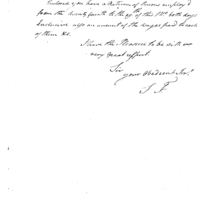 Enclosed you have a Return of Persons employ'd
from the twenty fourth to the of this both days
Inclusive also an amount of the wages paid to each
of them &c.
I have the Pleasure to be with
very Great respect
Sir
your Obedient Ser.t
J. F.